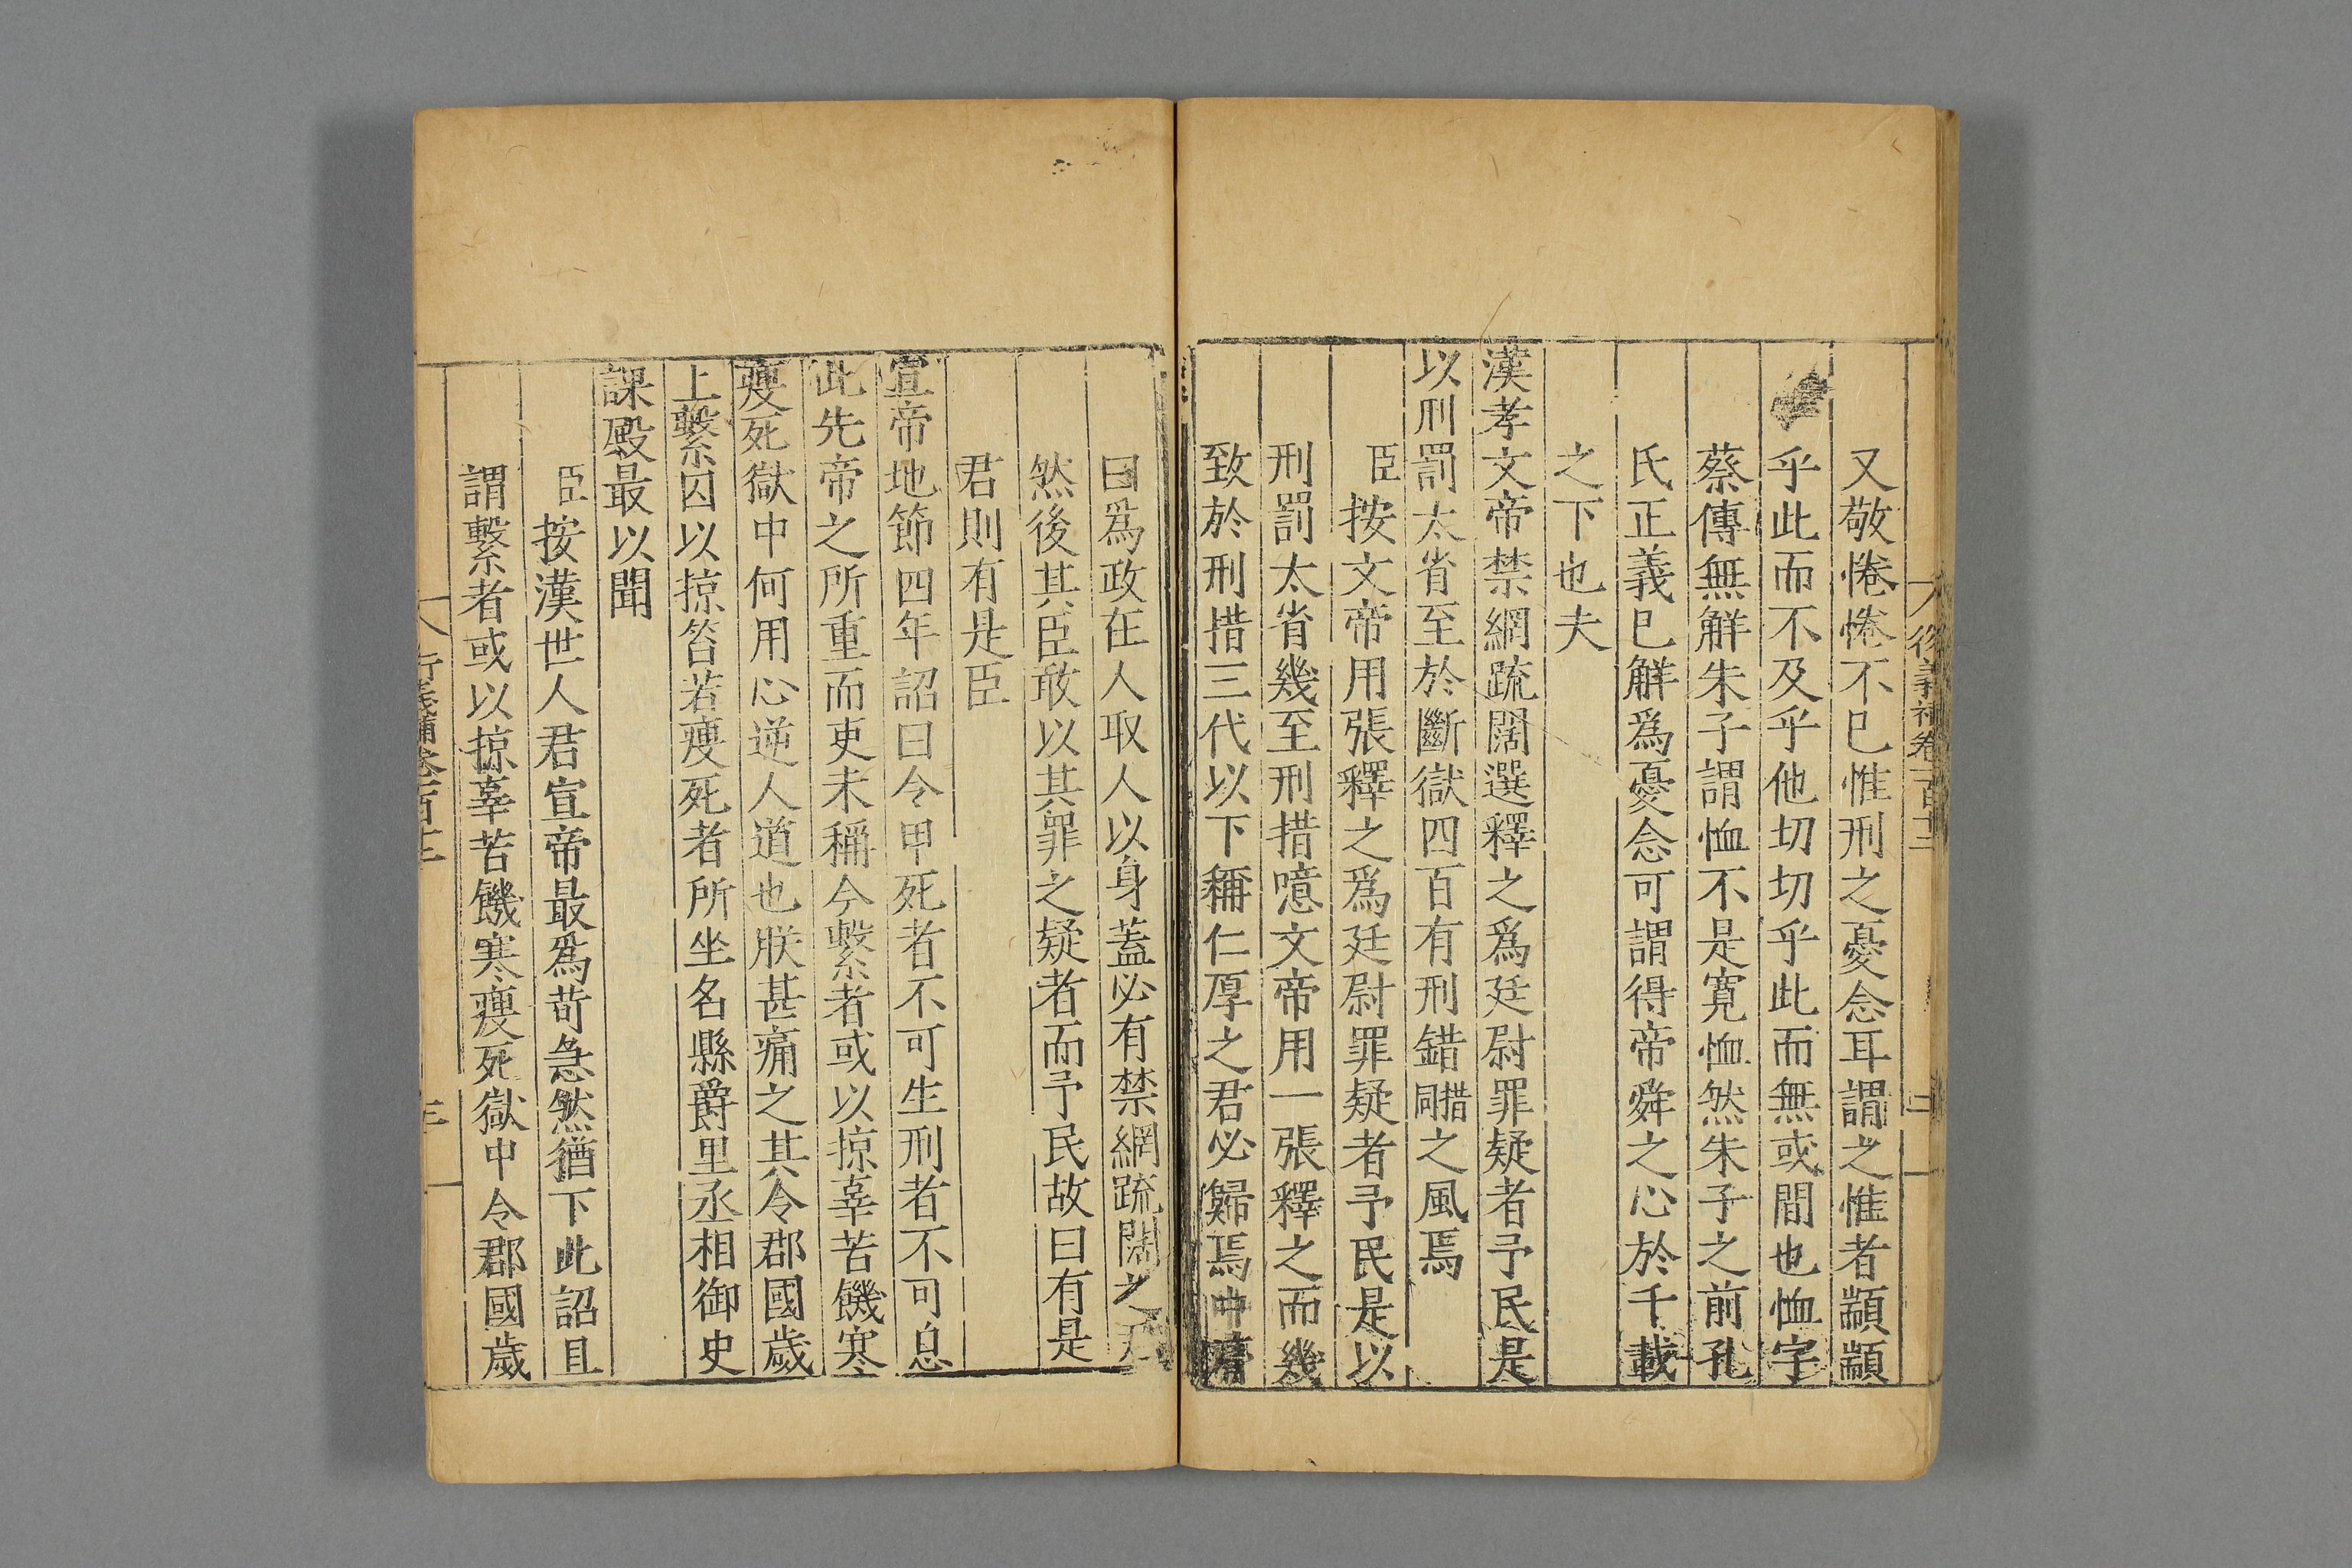 又敬惓惓不已惟刑之憂念耳謂之惟者顓顓
乎此而不及乎他切切乎此而無或間也恤字
蔡傳無觧朱子謂恤不是寛恤然朱子之前孔
氏正義已觧爲憂念可謂得帝舜之心於千載
之下也夫
漢孝文帝禁網疏闊選釋之爲廷尉罪疑者予民是
以刑罰太省至於斷獄四百有刑錯同措之風焉
臣按文帝用張釋之爲廷尉罪疑者予民是以
刑罰太省幾至刑措噫文帝用一張釋之而幾
致於刑措三代以下稱仁厚之君必歸焉中庸
曰爲政在人取人以身蓋必有禁網疏闊之君
然後其臣敢以其罪之疑者而予民故曰有是
君則有是臣
宣帝地節四年詔曰令甲死者不可生刑者不可息
此先帝之所重而吏未稱今繫者或以掠辜苦饑寒
瘐死獄中何用心逆人道也朕甚痛之其令郡國歲
上繫囚以掠笞若瘐死者所坐名縣爵里丞相御史
課殿最以聞
臣按漢世人君宣帝最爲苛急然猶下此詔且
謂繫者或以掠辜苦饑寒瘐死獄中令郡國歲